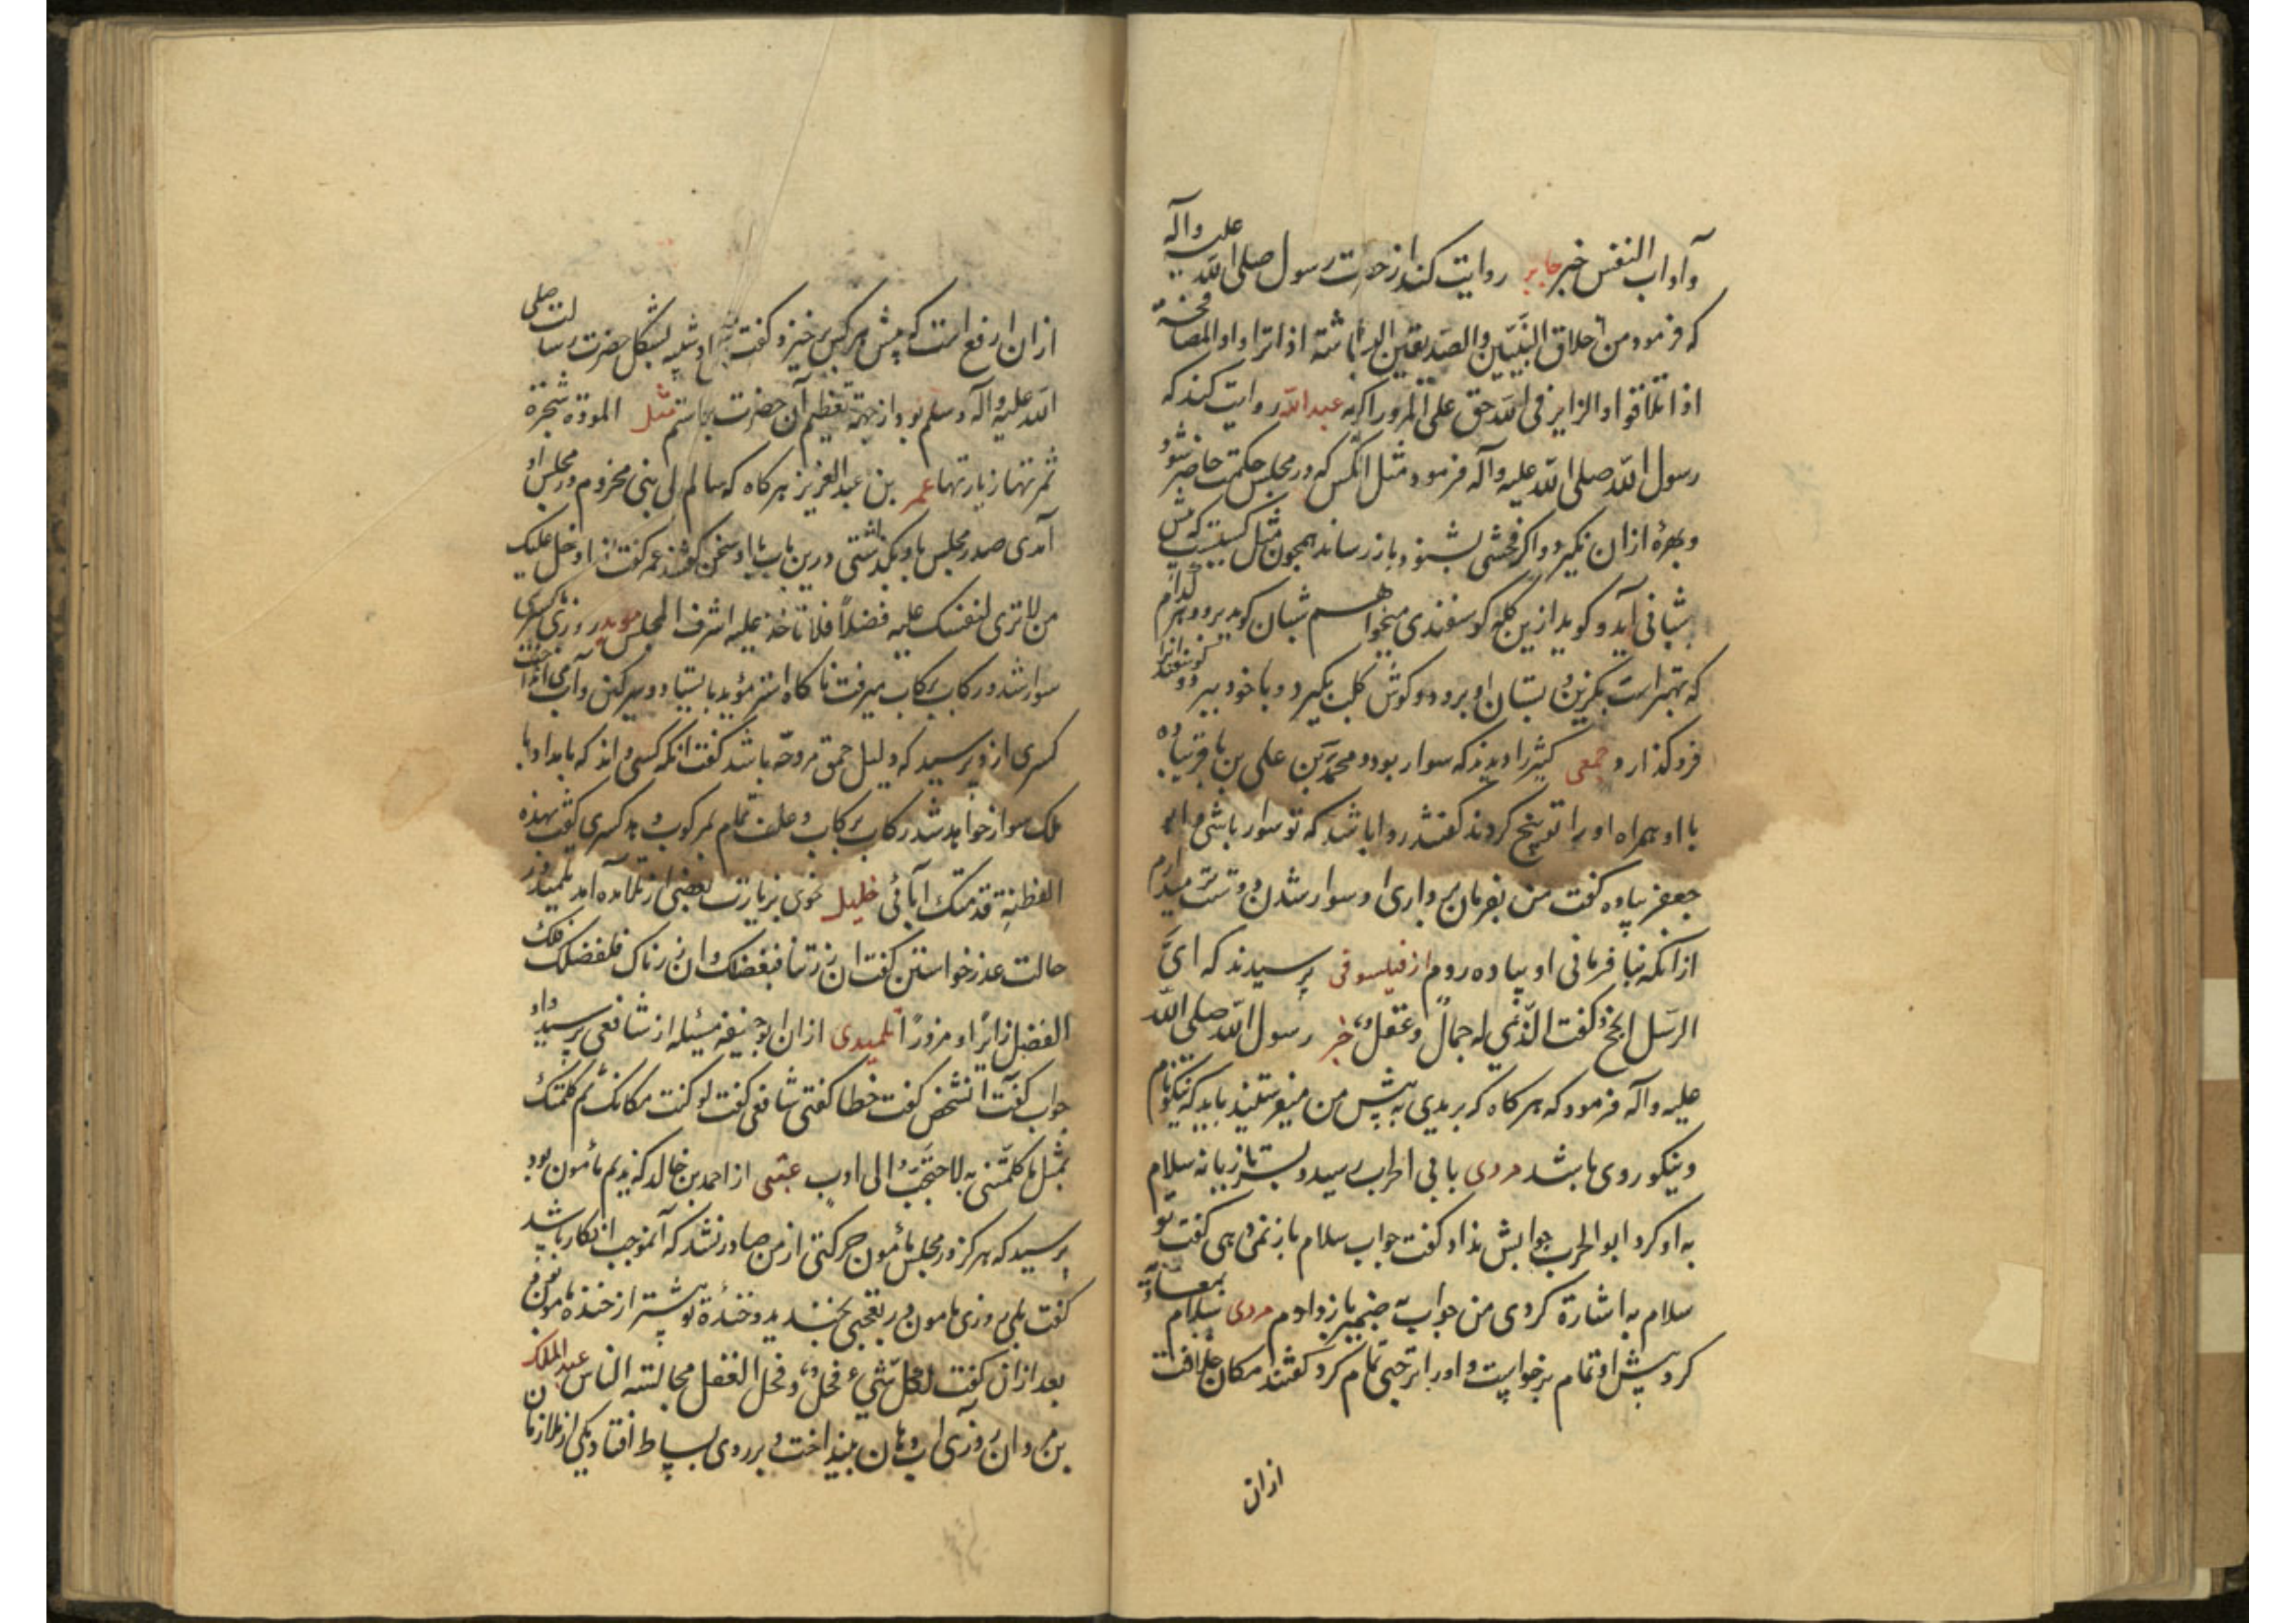 وآداب النفس خبر جابر روایت کند از حضرت رسول صلی الله علیه وآله
که فرمود من اخلاق النبیین والصدیقین البشاشة اذا تراوا والمصافحة
اذا تلاقوا والزایر فی الله حق علی المزور اکرامه عبدالله روایت کند که
رسول الله صلی الله علیه وآله فرمود مثل آنکس که در مجلس حکمت حاضر شود
وبهرهٔ ازان نگیرد واگر فحشی بشنود باز رساند همچون مثل کسیست که پیش
شبانی آید و گوید ازین گله گوسفندی میخواهم شبان گوید برو وهر کدام
که بهتر است بگزین بستان او برود و گوش کلب بگیرد و با خود ببرد و گوسفندانرا
فرو گذارد جمعی کثیر را دیدند که سوار بود و محمد بن علی بن باقر پیاده
با او همراه او را توبیخ کردند گفتند روا باشد که تو سوار باشی و
جعفر پیاده گفت من بفرمان برداری او سوار شدن دوستتر میدارم
ازانکه بنافرمانی او پیاده روم از فیلسوفی پرسیدند که ای
الرسل انجح گفت الذی له جمال وعقل خبر رسول الله صلی الله
علیه وآله فرمود که هر کاه که بریدی به پیش من میفرستید باید که نیکونام
ونیکو روی باشد مردی بابی الحرب رسید و بسر تازیانه سلام
به او کرد ابو الحرب جوابش نداد گفت جواب سلام باز نمی دهی گفت تو
سلام به اشارة کردی من جواب به ضمیر باز دادم مردی سلام
کرد پیش او تمام برخواست و اورا ترحیبی تمام کرد گفتند مکان
ازان
ازان ارفع است که پیش هر کس برخیزد گفت او شبیه بشکل حضرت رسالت صلی
الله علیه وآله وسلم بود از جهة تعظیم آن حضرت برخاستم مثل المودة شجرة
ثمرتها زیارتها عمر بن عبد العزیز هر کاه که سالم مولی بنی مخزوم در مجلس او
آمدی صدر مجلس باو بگذاشتی درین باب با او سخن گفتند عمر گفت اذا دخل علیک
من لا تری لنفسک علیه فضلاً فلا تأخذ علیه اشرف المجلس موبد روزی با کسری
سوار شد و رکاب برکاب میرفت ناکاه استر مؤبد بایستاد و سرکین وآب می انداخت
کسری ازو پرسید که دلیل حمق مرد چه باشد گفت آنکه کسی داند که بامداد با
ملک سوار خواهد شد رکاب برکاب وعلف تمام بمرکوب دهد کسری گفت بهذه
الفطنة قدمتک آبائی خلیل نحوی بزیارت بعضی از تلامذه آمد تلمیذ در
حالت عذر خواستن گفت ان زرتنا فبفضلک وان زرناک فلفضلک فلک
الفضل زایراً او مزوراً تلمیذی ازان ابو حنیفه مسئله از شافعی پرسید او
جواب گفت آنشخص گفت خطا گفتی شافعی گفت لو کنت مکانک ثم کلمتک
بمثل ما کلمتنی به لاحتجت الی ادب عتبی از احمد بن خالد که ندیم مأمون بود
پرسید که هرکز در مجلس مأمون حرکتی از من صادر نشد که آن موجب انکار باشد
گفت بلی روزی مامون در تعجبی بخندید و خندهٔ تو بیشتر از خندهٔ مامون
بعد ازان گفت لکل شیء فحل وفحل العقل مجالسة الناس عبد الملک
بن مروان روزی آب دهان بینداخت و بر روی بساط افتاد یکی از ملازمان